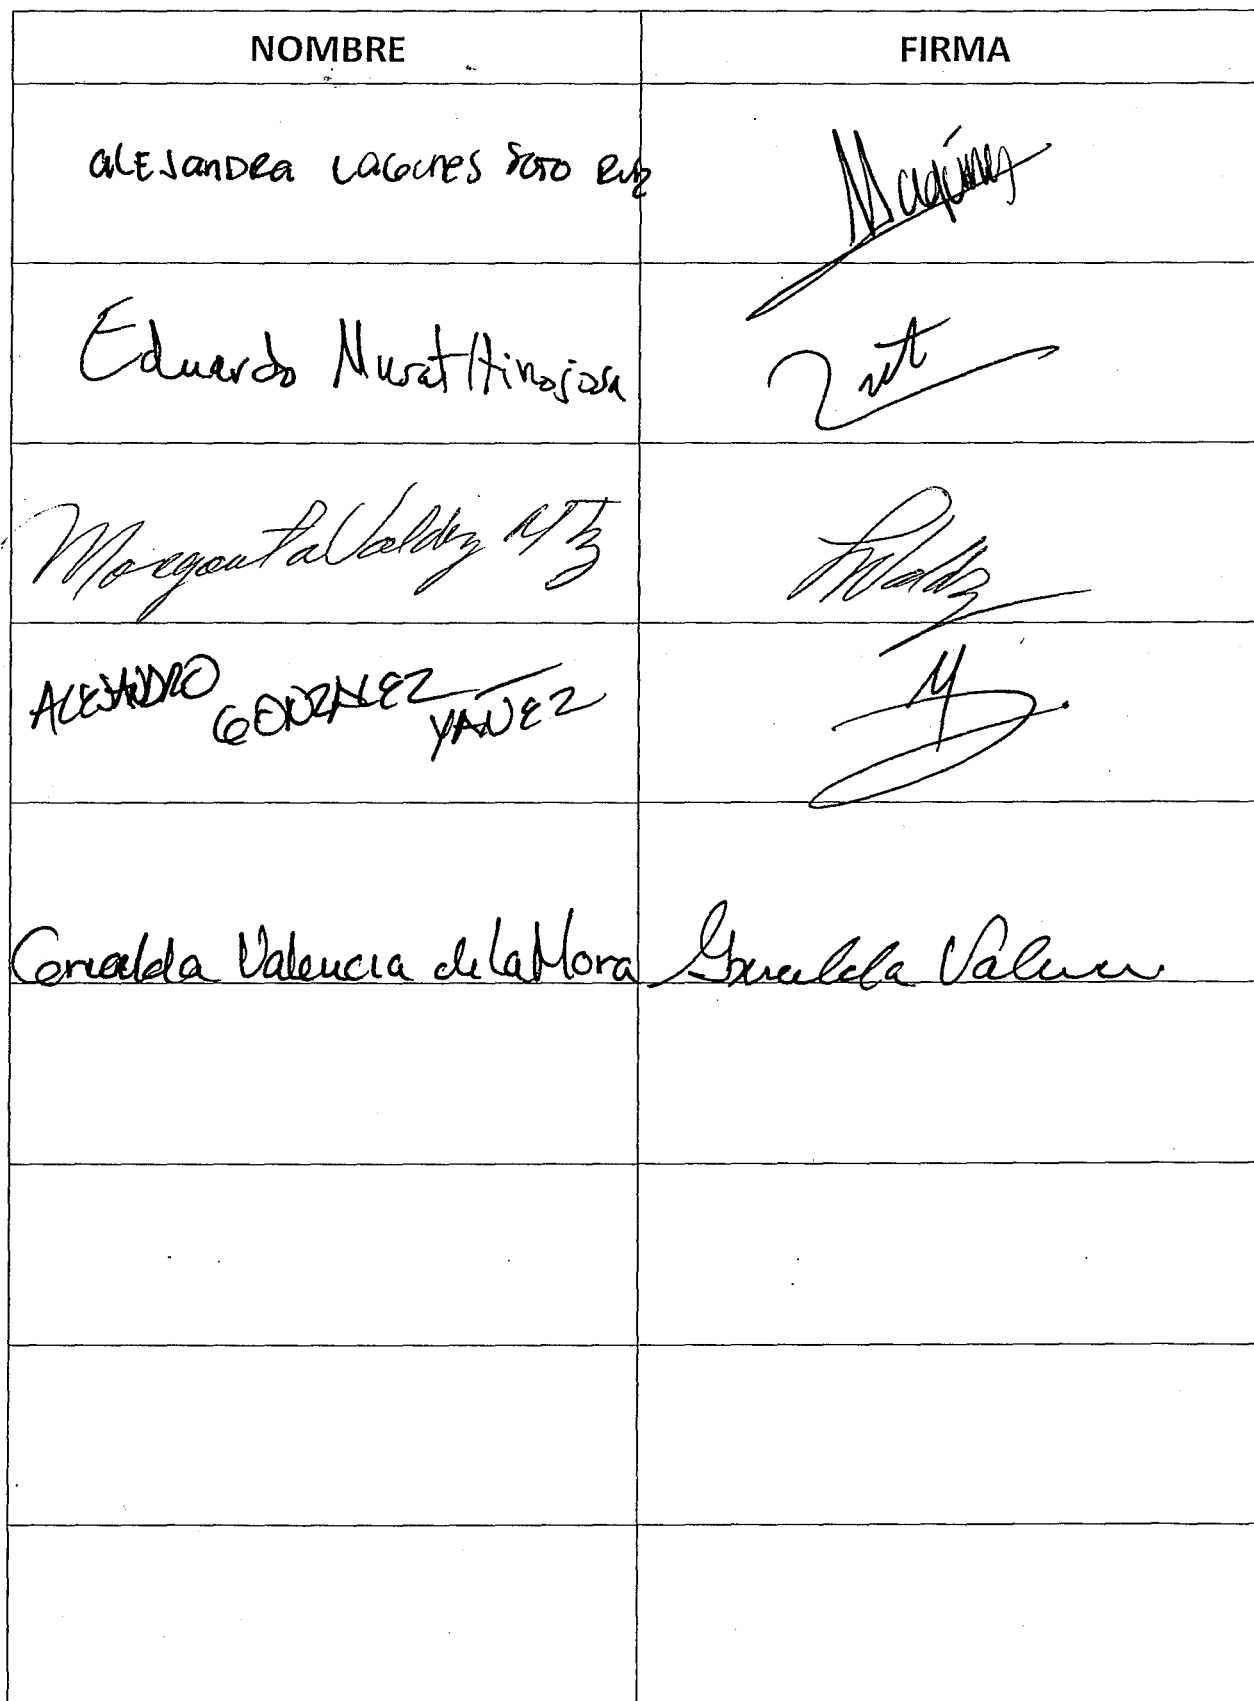 NOMBRE FIRMA
ALEJANDRA LAGUNES SOTO RUIZ
Eduardo Murat Hinojosa
Margarita Valdez Mtz
ALEJANDRO GONZALEZ YAÑEZ
Griselda Valencia de la Mora Griselda